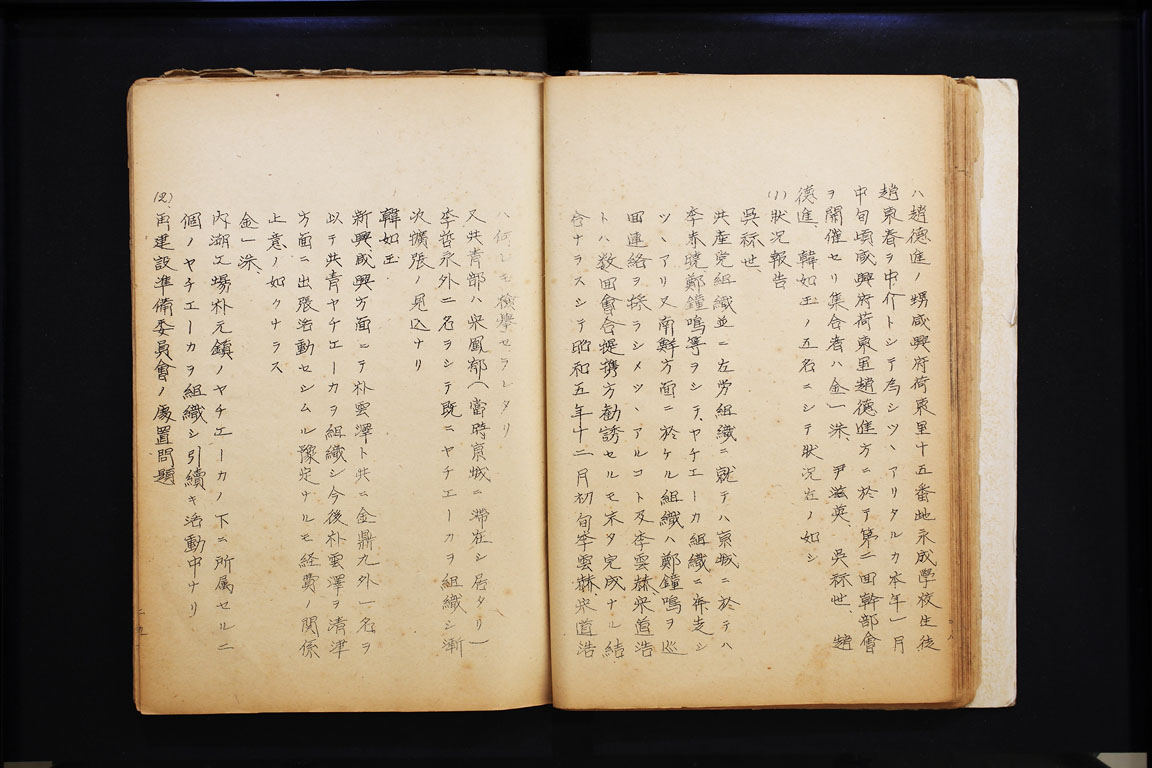 ハ趙德進ノ甥咸興府荷東里十五番地永成學校生徒
趙東春ヲ中介トシテ為シツヽアリタルカ本年一月
中旬頃咸興府荷東里趙德進方ニ於テ第二回幹部會
ヲ開催セリ集合者ハ金一洙、尹滋英、吳祘世、趙
德進、韓如玉ノ五名ニシテ狀況左ノ如シ
(1)狀況報告
吳祘世、
共產党組織並ニ左労組織ニ就テハ京城ニ於テハ
李春𤍠鄭鐘鳴等ヲシテ、ヤチエーカ組織ニ奔走シ
ツヽアリ又南鮮方面ニ於ケル組織ハ鄭鐘鳴ヲ巡
回連絡ヲ採ラシメツヽアルコト及李雲赫、宋道浩
トハ数回會合提携方勧誘セルモ未タ完成ナル結
合ナラスシテ昭和五年十二月初旬李雲赫宋道浩
ハ何レモ檢擧セラレタリ
又共青部ハ宋鳳郁(當時京城ニ滯在シ居タリ)
李哲永外二名ヲシテ既ニヤチエーカヲ組織シ漸
次擴張ノ見込ナリ
韓如玉、
新興咸興方面ニテ朴雲澤ト共ニ金鼎九外一名ヲ
以テ共青ヤチエーカヲ組織シ今後朴雲澤ヲ清津
方面ニ出張活動セシムル豫定ナルモ経費ノ関係
上意ノ如クナラス
金一洙、
內湖工場朴元鎮ノヤチエーカノ下ニ所属セル二
個ノヤチエーカヲ組織シ引續キ活動中ナリ
(2)、再建設準備委員會ノ處置問題